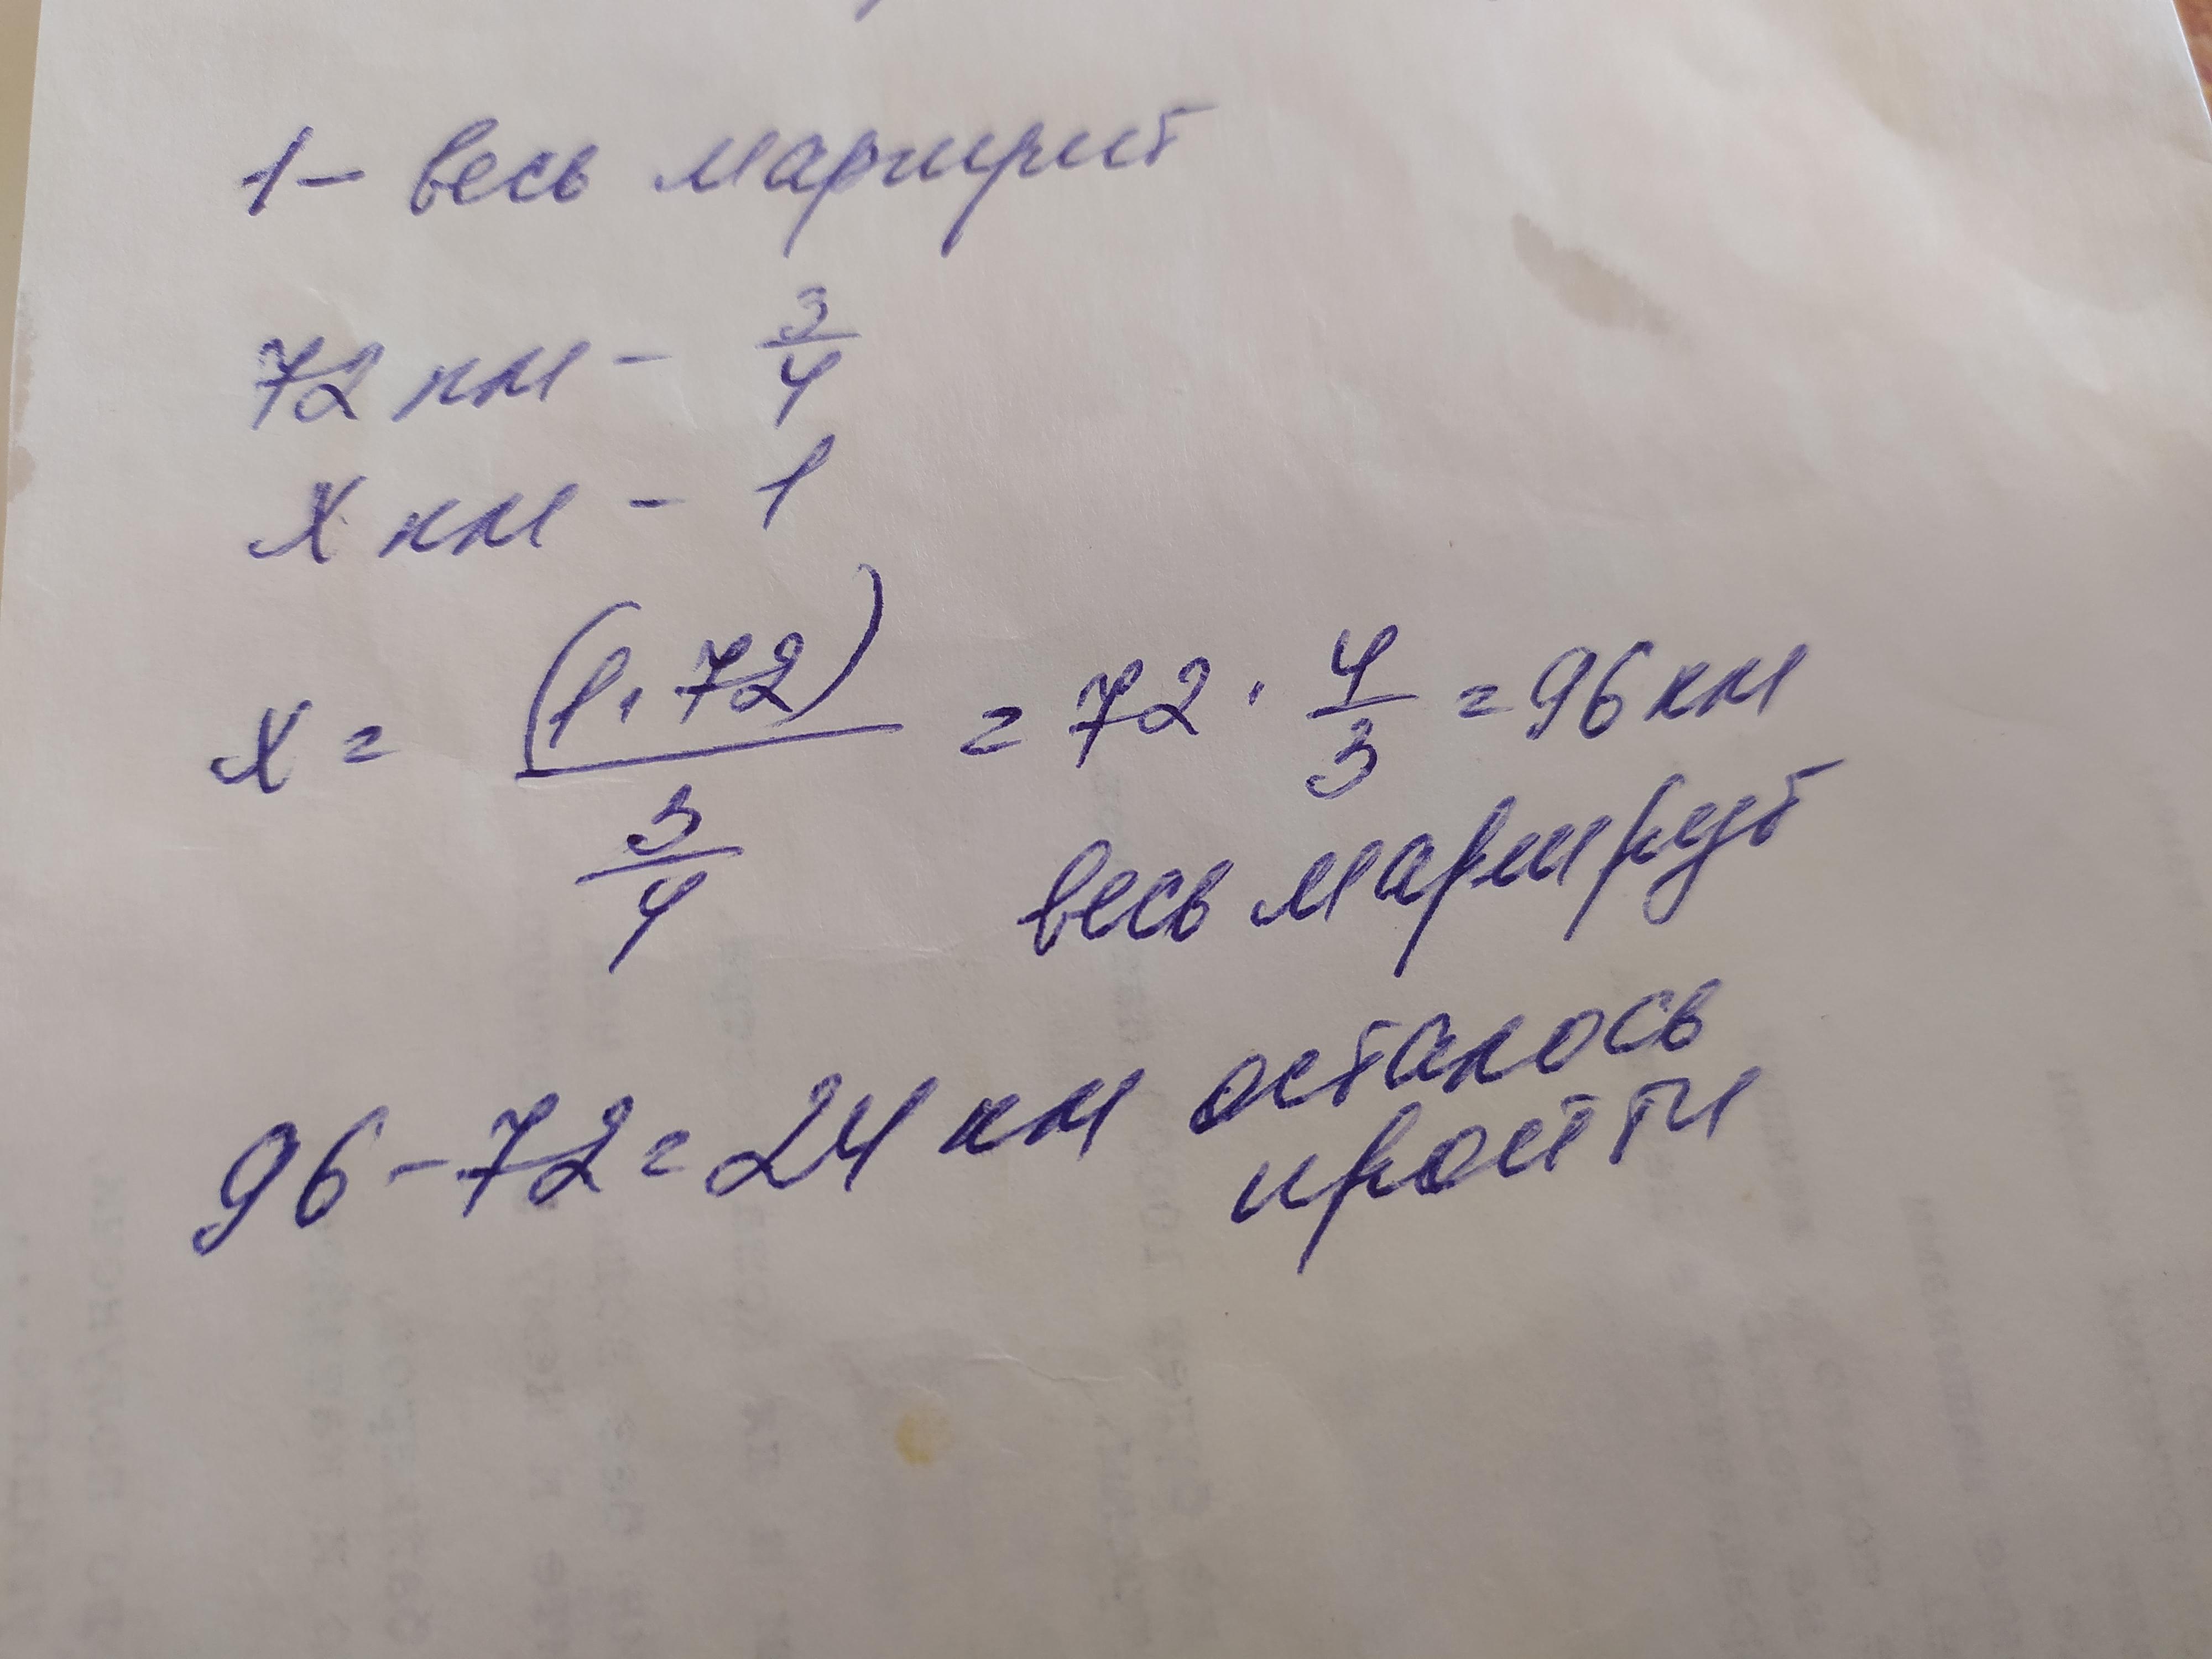 1 – весь маршрут
72 км – 3/4
х км – 1
х = (1 · 72) / 3/4 = 72 · 4/3 = 96 км
весь маршрут
96 – 72 = 24 км осталось
пройти